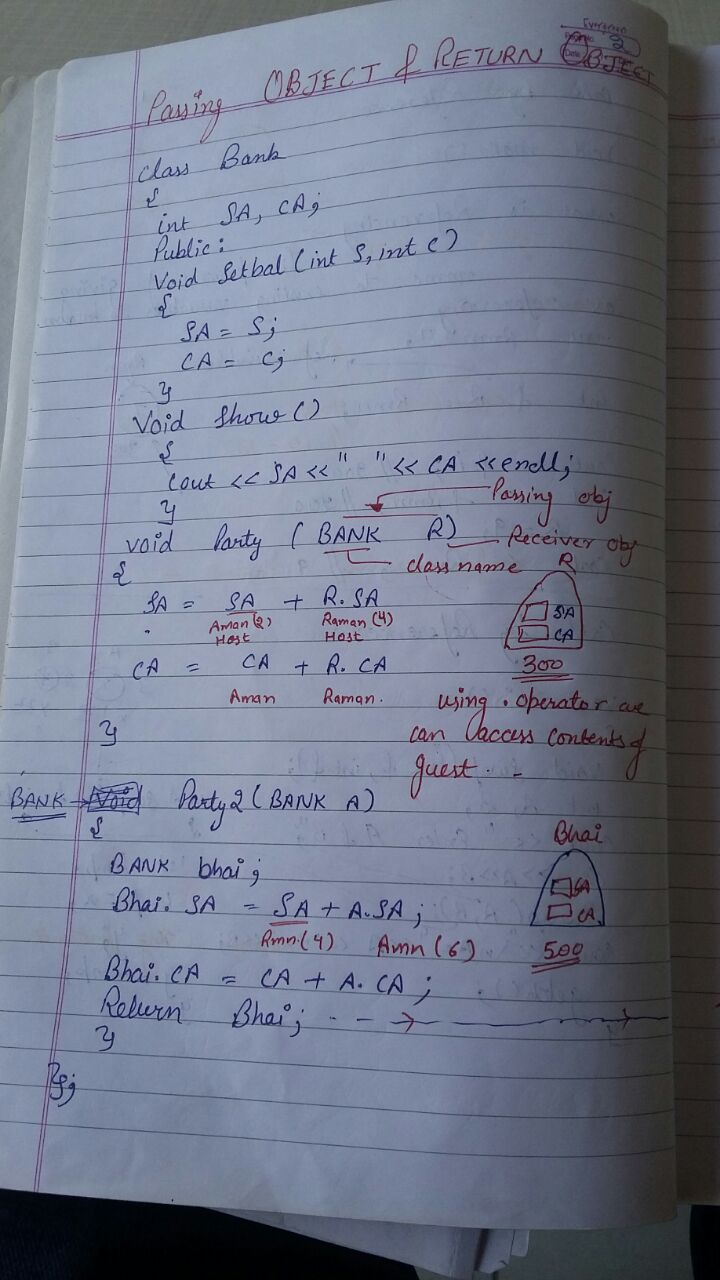 Evergreen
Page No. 2
Date
Passing OBJECT & RETURN OBJECT
Class Bank
{
int SA, CA;
Public:
Void Setbal (int S, int C)
{
SA = S;
CA = C;
}
Void Show ()
{
Cout << SA << " " << CA << endl;
}
Passing obj
void Party ( BANK R)
Receiver obj
class name
{
R
SA = SA + R. SA
SA
Aman(2) Raman (4)
Host Host
CA
CA = CA + R. CA
300
Aman Raman.
using . operator we
can access contents of
guest.
}
BANK → Void Party2 ( BANK A)
{
Bhai
BANK bhai ;
Bhai. SA = SA + A.SA ;
SA
CA
Rmn(4) Amn (6)
500
Bhai. CA = CA + A. CA ;
Return Bhai;
}
};